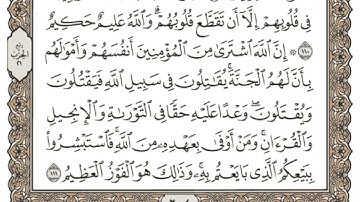 فِى قُلُوبِهِمْ إِلَّآ أَن تَقَطَّعَ قُلُوبُهُمْ ۗ وَٱللَّهُ عَلِيمٌ حَكِيمٌ
١١٠ ۞ إِنَّ ٱللَّهَ ٱشْتَرَىٰ مِنَ ٱلْمُؤْمِنِينَ أَنفُسَهُمْ وَأَمْوَٰلَهُم
بِأَنَّ لَهُمُ ٱلْجَنَّةَ ۚ يُقَٰتِلُونَ فِى سَبِيلِ ٱللَّهِ فَيَقْتُلُونَ
وَيُقْتَلُونَ ۖ وَعْدًا عَلَيْهِ حَقًّا فِى ٱلتَّوْرَىٰةِ وَٱلْإِنجِيلِ
وَٱلْقُرْءَانِ ۚ وَمَنْ أَوْفَىٰ بِعَهْدِهِۦ مِنَ ٱللَّهِ ۚ فَٱسْتَبْشِرُوا۟
بِبَيْعِكُمُ ٱلَّذِى بَايَعْتُم بِهِۦ ۚ وَذَٰلِكَ هُوَ ٱلْفَوْزُ ٱلْعَظِيمُ ١١١